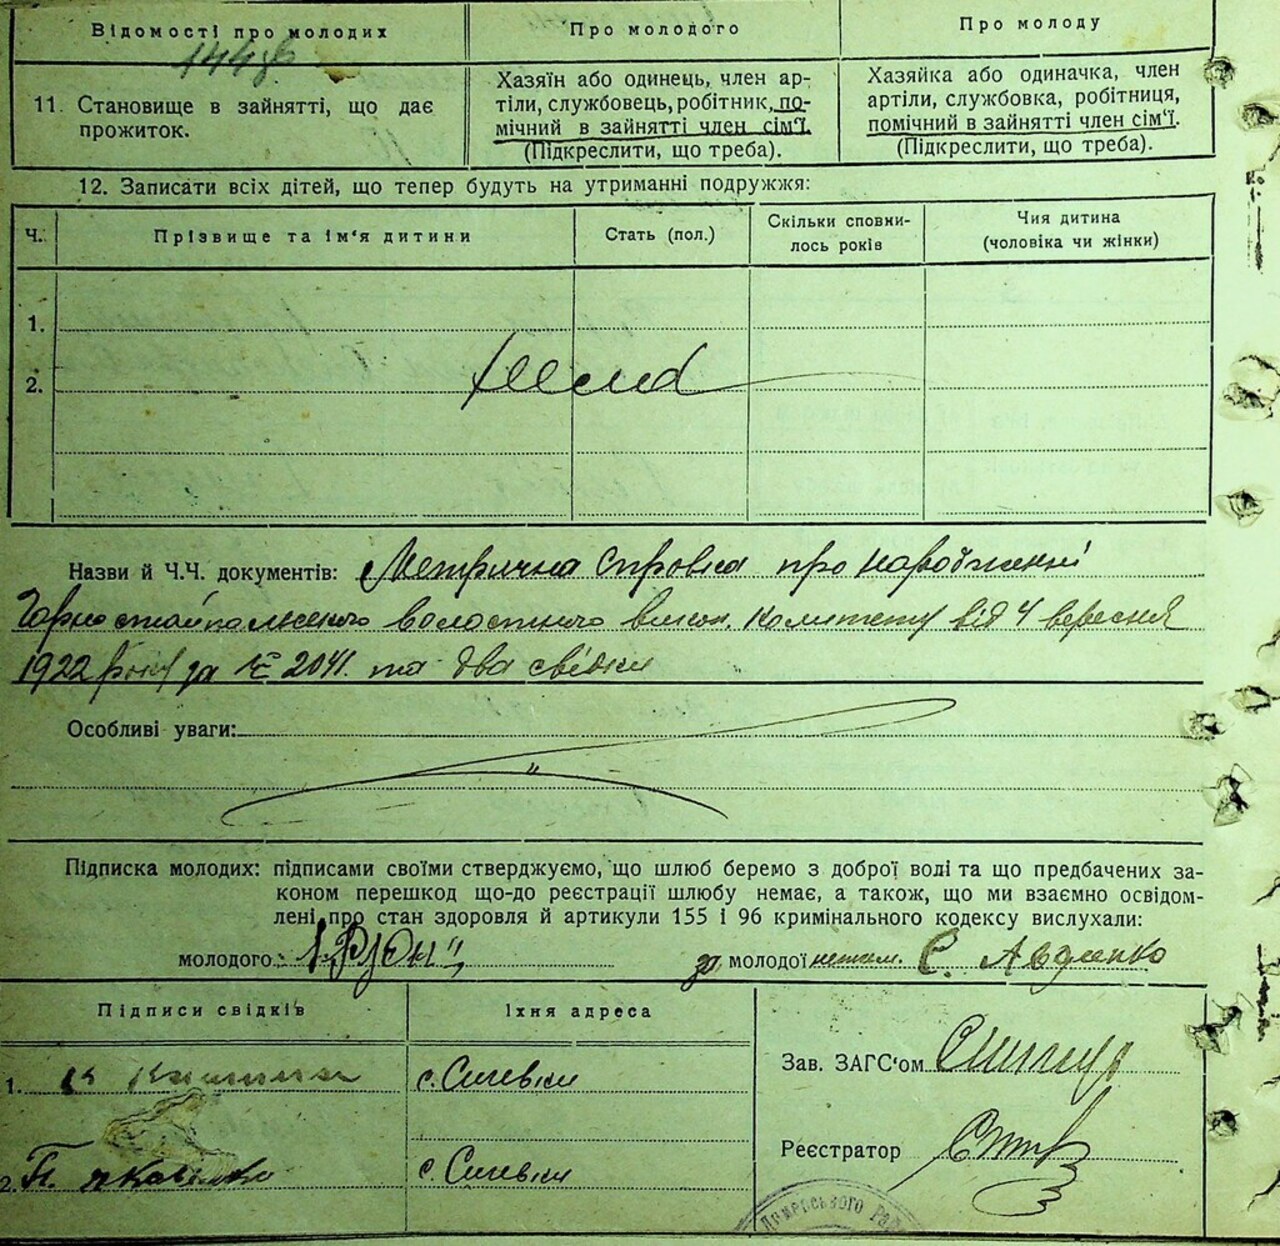 Відомості про молодих
Про молодого
Про молоду
144
11. Становище в зайнятті, що дає
прожиток.
Хазяїн або одинець, член ар-
тіли, службовець, робітник, по-
мічний в зайнятті член сім'ї.
(Підкреслити, що треба).
Хазяйка або одиначка, член
артіли, службовка, робітниця,
помічний в зайнятті член сім'ї.
(Підкреслити, що треба).
12. Записати всіх дітей, що тепер будуть на утриманні подружжя:
Ч.
Прізвище та ім'я дитини
Стать (пол.)
Скільки сповни-
лось років
Чия дитина
(чоловіка чи жінки)
1.
2.
Назви й Ч.Ч. документів: Метрична справка про народження
Горностайпольського волостного викон. комитету від 4 вересня
1922 року за № 2041. та два свідки
Особливі уваги:
Підписка молодих: підписами своїми стверджуємо, що шлюб беремо з доброї волі та що предбачених за-
коном перешкод що-до реєстрації шлюбу немає, а також, що ми взаємно освідом-
лені про стан здоровля й артикули 155 і 96 кримінального кодексу вислухали:
молодого:
за молодої неписьм. С. Авдієнко
Підписи свідків
Їхня адреса
Зав. ЗАГС'ом
1.
с. Сичевки
Реєстратор
2.
с. Сичевки